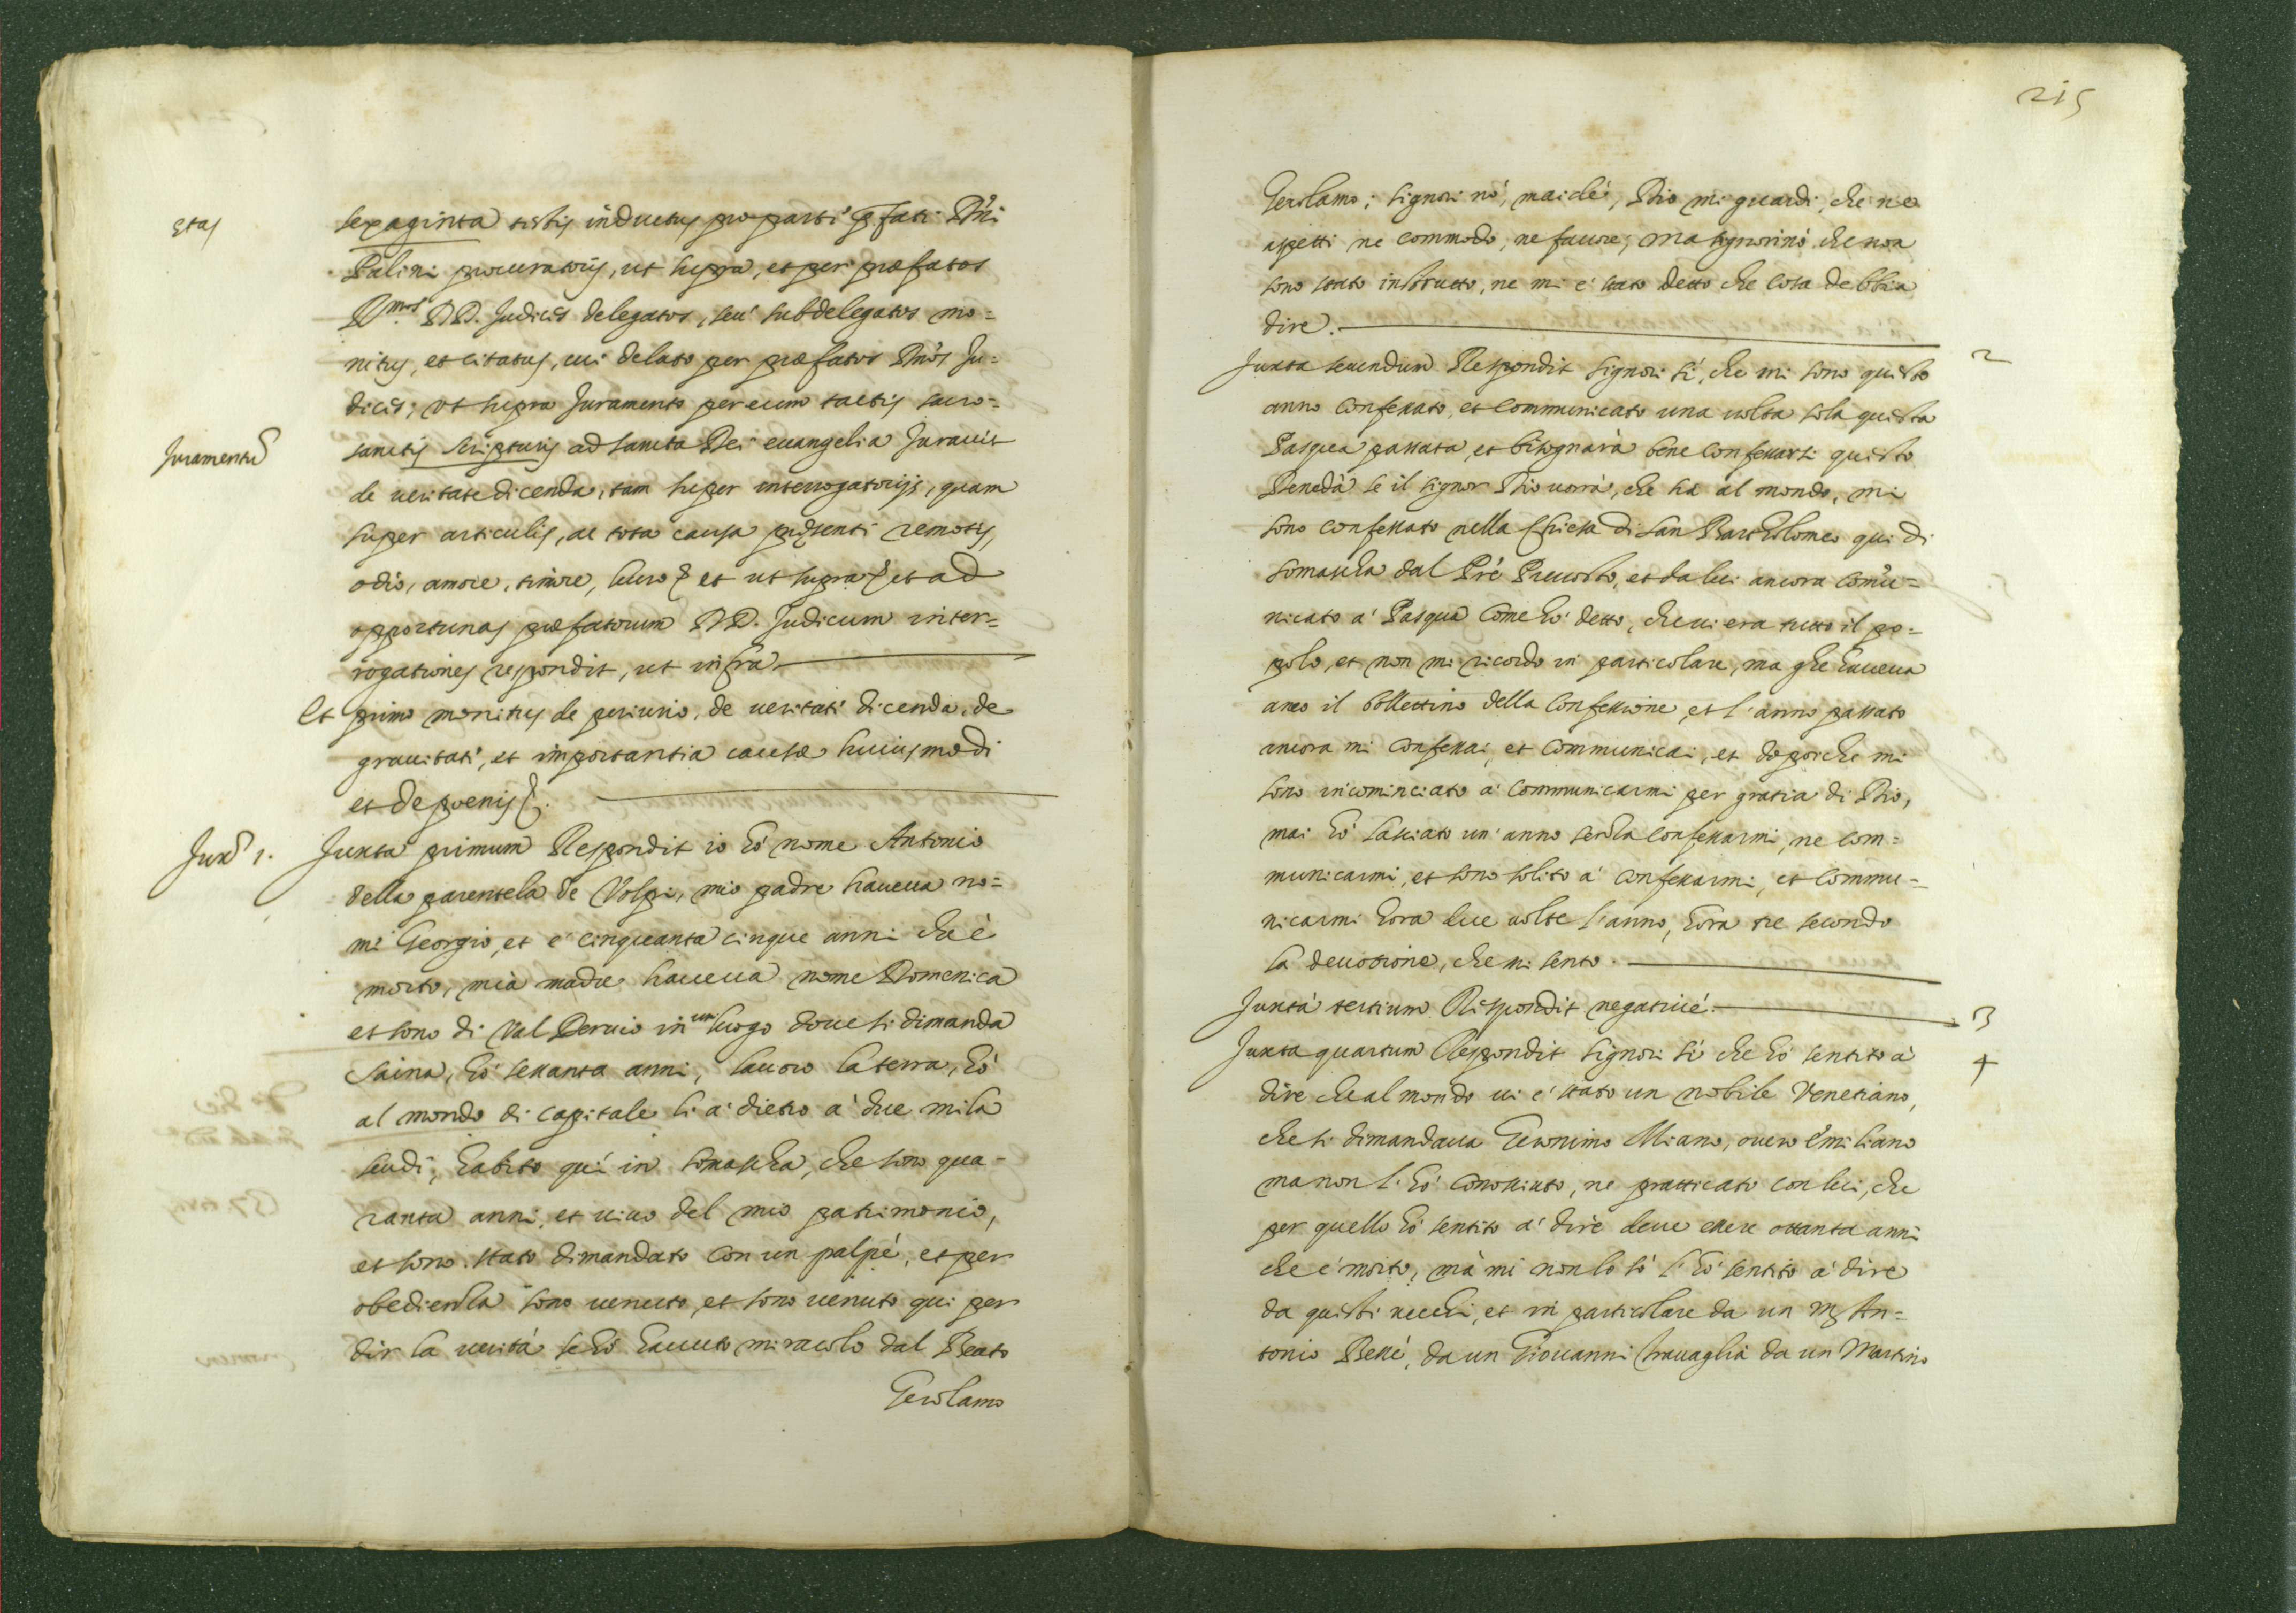 etas
sexaginta testis inductus pro parte p̃fati Dñi
Palini procuratoris, ut supra, et per præfatos
R.mos DD. Judices delegatos, seu subdelegatos mo=
nitus, et citatus, cui delato per præfatos Dños Ju=
dices, ut supra Juramento per eum tactis sacro=
Juramentũ
sanctis scripturis ad sancta Dei euangelia Jurauit
de ueritate dicenda, tam super interrogatorijs, quam
super articulis, ac tota causa præsenti remotis,
odio, amore, timore, lucro et ut supra et ad
opportunas præfatorum DD. Judicum inter=
rogationes respondit, ut infra
Et primo monitus de periurio, de ueritate dicenda, de
grauitate, et importantia causæ huiusmodi
et de poenis
Juxᵃ 1.
Juxta primum Respondit io hò nome Antonio
della parentela de Volpi, mio padre haueua no=
me Georgio, et è cinquanta cinque anni che è
morto, mia madre haueua nome Domenica
et sono di Val Deruio in un luogo doue si dimanda
Saina, hò sessanta anni, lauoro la terra, hò
al mondo di capitale li a dietro a due mila
scudi, habito quì in Somascha, che sono qua=
ranta anni, et uiuo del mio patrimonio,
et sono stato dimandato con un palpè, et per
obedienza sono uenuto, et sono uenuto qui per
dir la uerità se hò hauuto miracolo dal Beato
Gerolamo
215
Gerolamo; signori nò, maidè, Dio mi guardi, che ne
aspetti ne commodo, ne fauore, ma signorinò che non
sono stato instrutto, ne mi è stato detto che cosa debbia
dire.
2
Juxta secundum Respondit signori sì, che mi sono questo
anno confessato, et communicato una uolta sola questa
Pasqua passata, et bisognarà bene confessarsi questo
Benedà se il signor Dio uorrà, che ha al mondo, mi
sono confessato nella Chiesa di San Bartholomeo qui di
Somascha dal Prè Preuosto, et da lui ancora comu=
nicato a Pasqua come hò detto, che ui era tutto il po=
polo, et non mi ricordo in particolare, ma ghe haueua
anco il bollettino della confessione, et l'anno passato
ancora mi confessai, et communicai, et dopoiche mi
sono incominciato a communicarmi per gratia di Dio,
mai hò lassiato un' anno senza confessarmi, ne com=
municarmi, et sono solito a confessarmi, et commu=
nicarmi hora due uolte l'anno, hora tre secondo
la deuotione, che mi sento.
3
Juxta tertium Respondit negatiuè.
4
Juxta quartum Respondit signori sì che hò sentito a
dire che al mondo ui è stato un nobile Venetiano,
che si dimandaua Geronimo Miano, ouero Emiliano
ma non l'hò conossiuto, ne pratticato con lui, che
per quello hò sentito a dire deue essere ottanta anni
che è morto, mà mi non lo sò l'hò sentito a dire
da questi uecchi, et in particolare da un An=
tonio Bellè, da un Giouanni Trauaglia da un Martino